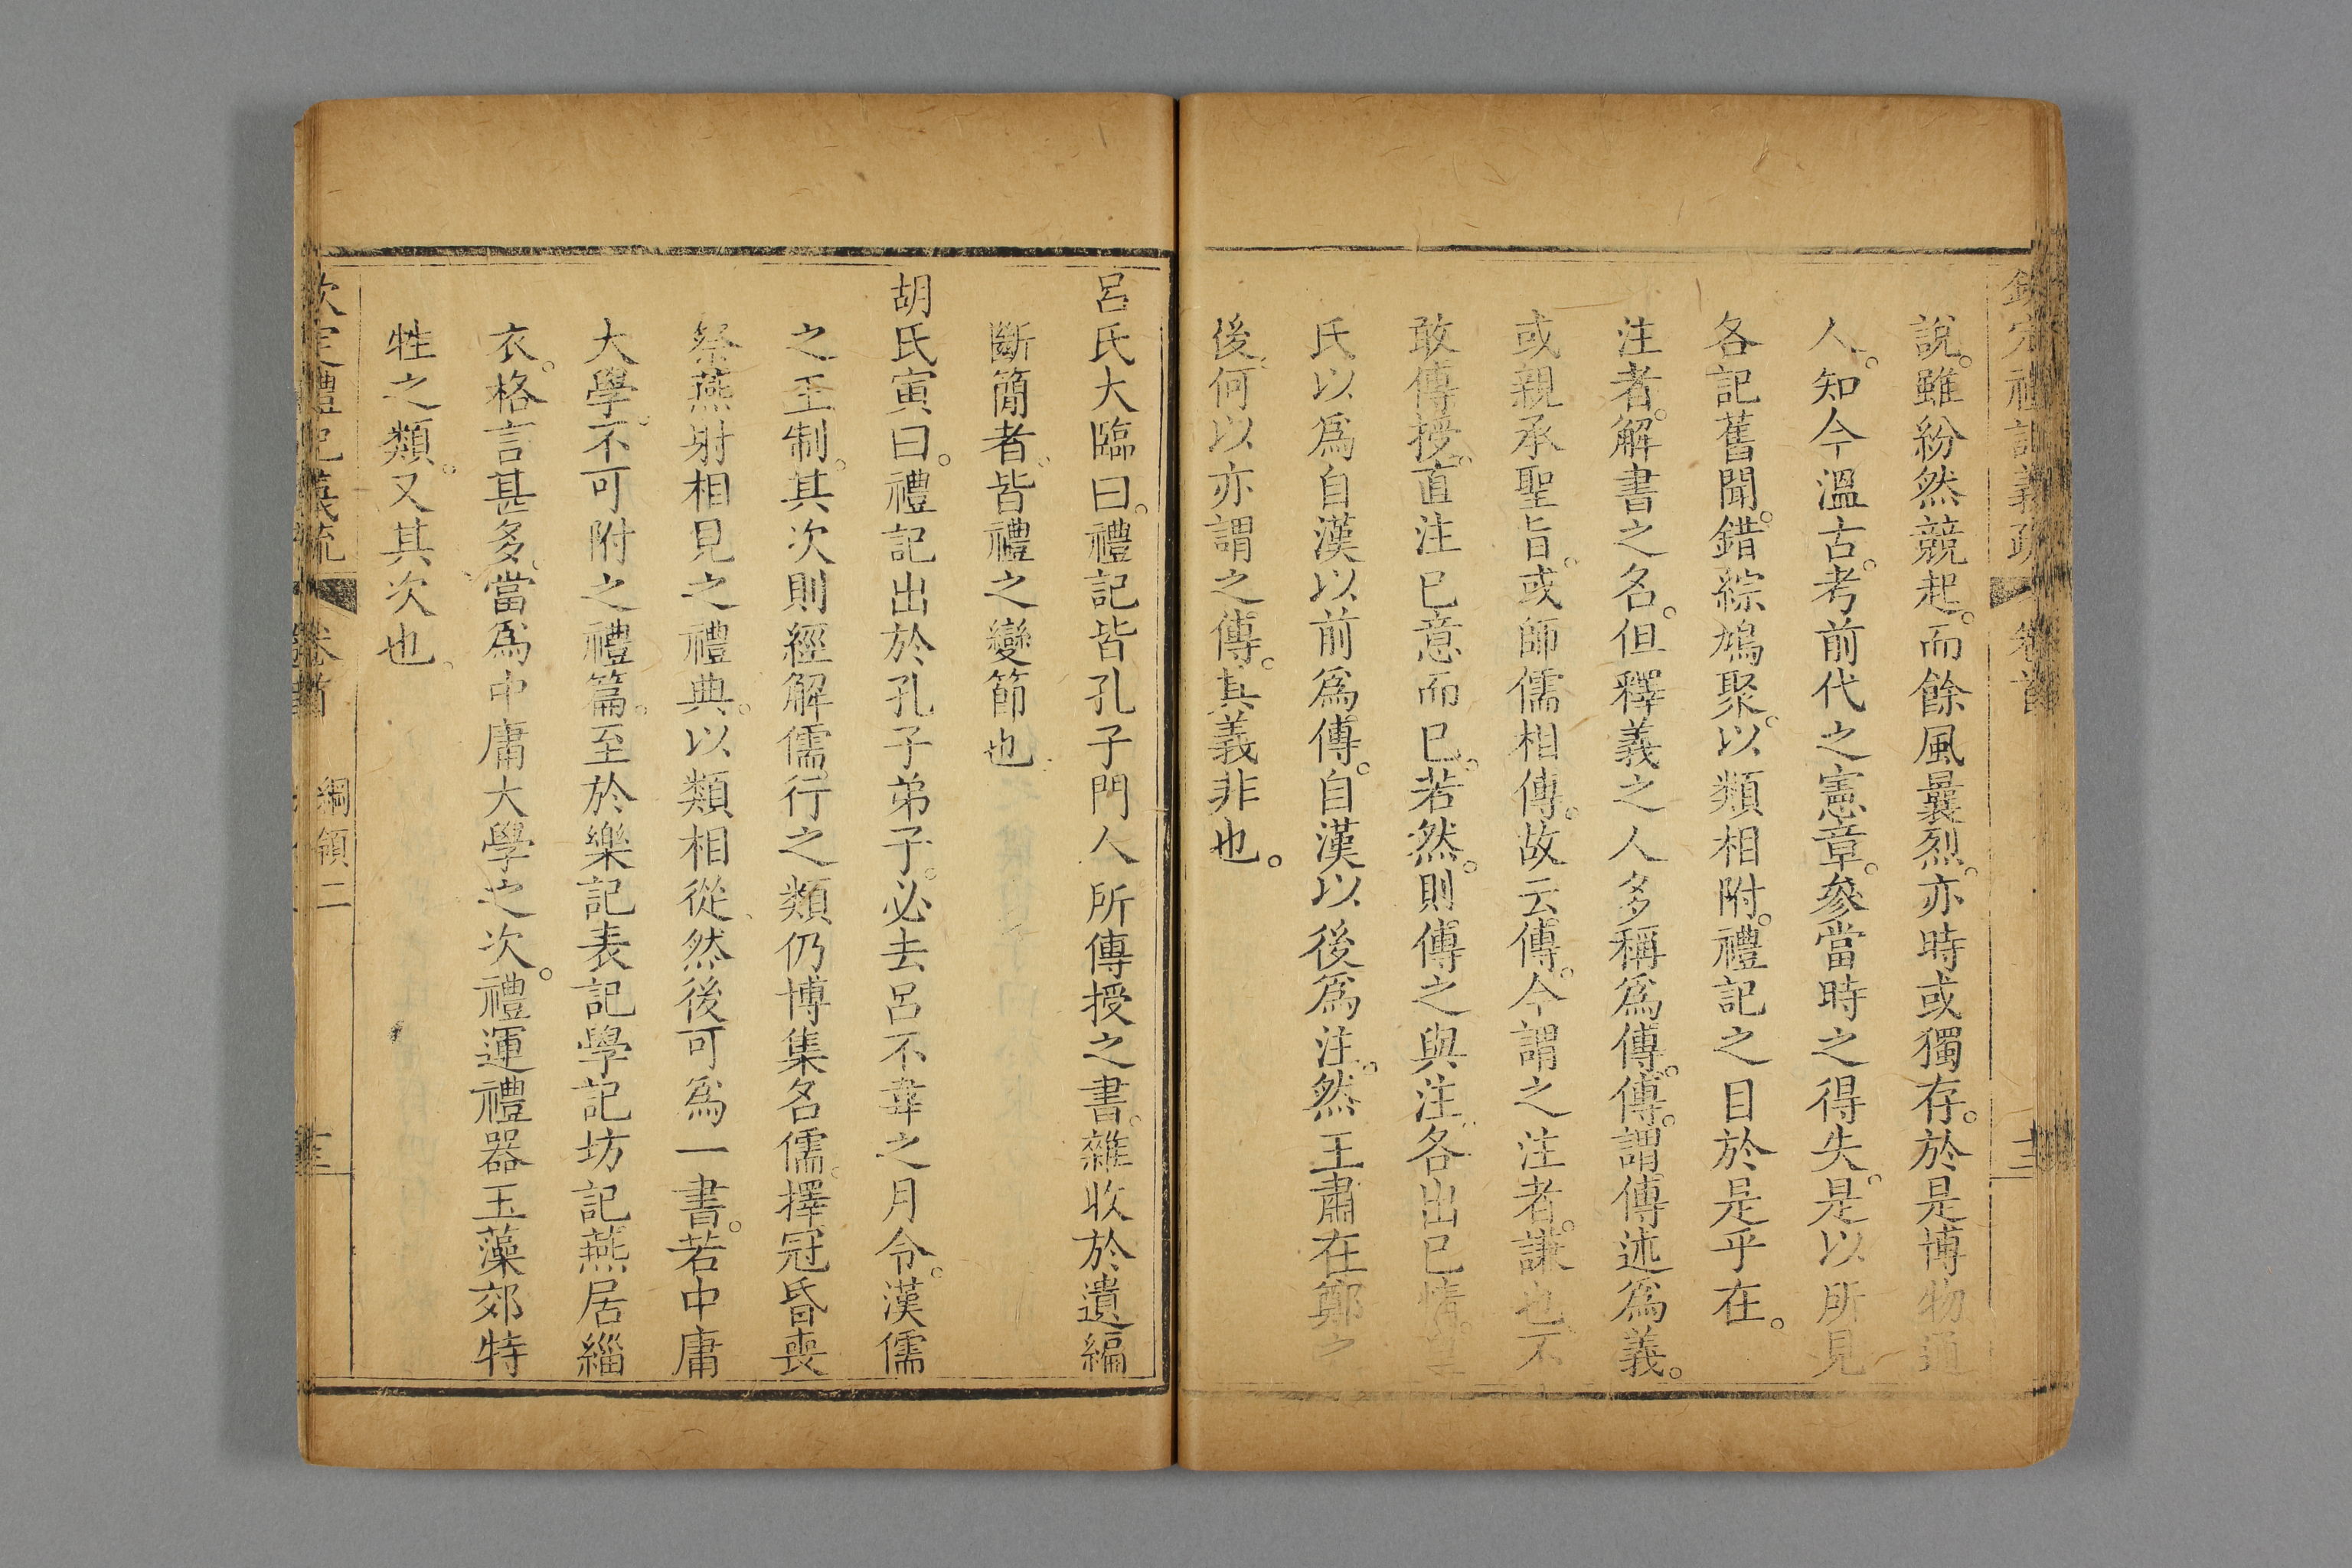 欽定禮記義疏 卷首 十二
說。雖紛然競起。而餘風曩烈。亦時或獨存。於是博物通
人。知今溫古。考前代之憲章。參當時之得失。是以所見
各記舊聞。錯綜鳩聚。以類相附。禮記之目於是乎在。
注者。解書之名。但釋義之人多稱爲傳。傳。謂傳述爲義。
或親承聖旨。或師儒相傳。故云傳。今謂之注者。謙也。不
敢傳授。直注已意而已。若然。則傳之與注。各出已情。
氏以爲自漢以前爲傳。自漢以後爲注。然王肅在鄭之
後。何以亦謂之傳。其義非也。
呂氏大臨曰。禮記皆孔子門人所傳授之書。雜收於遺編
斷簡者。皆禮之變節也。
胡氏寅曰。禮記出於孔子弟子。必去呂不韋之月令。漢儒
之王制。其次則經解儒行之類仍博集名儒。擇冠昏喪
祭燕射相見之禮典。以類相從。然後可爲一書。若中庸
大學。不可附之禮篇。至於樂記表記學記坊記燕居緇
衣。格言甚多。當爲中庸大學之次。禮運禮器玉藻郊特
牲之類。又其次也。
欽定禮記義疏 卷首 綱領二